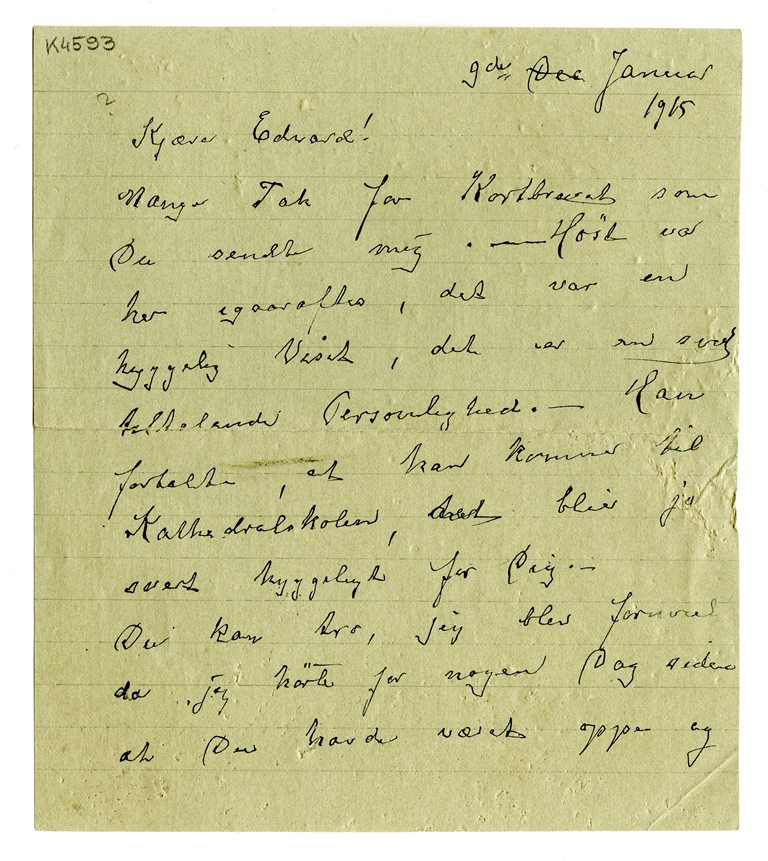 K4593
9de Dec Januar
1915
?
Kjære Edvard!
Mange Tak for Kortbrevet som
Du sendte mig. — Höst var
her igaaraftes, det var en
hyggelig Visit, det er en
tiltalende Personlighed. — Han
fortalte, at han kommer til
Kathedralskolen, det bliver jo
svert hyggeligt for Dig. —
Du kan tro, jeg blev fornöiet
da jeg hörte for nogen Dag siden
at Du havde været oppe og